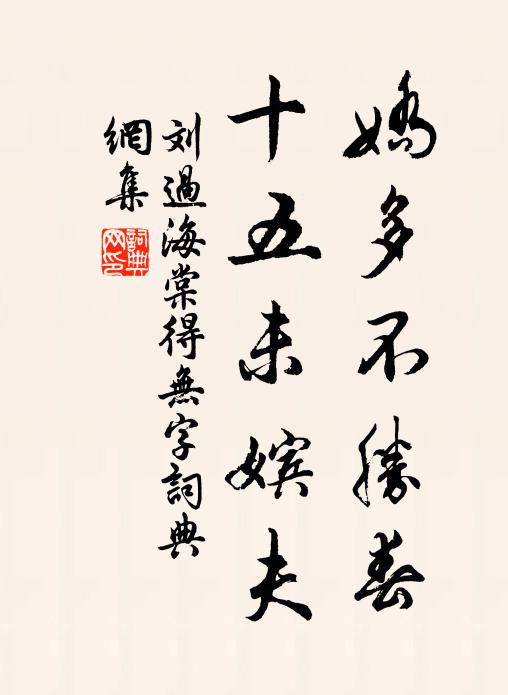 嬌多不勝春
十五未嬪夫
刘過海棠得無字詞典
網集
詞典
网印